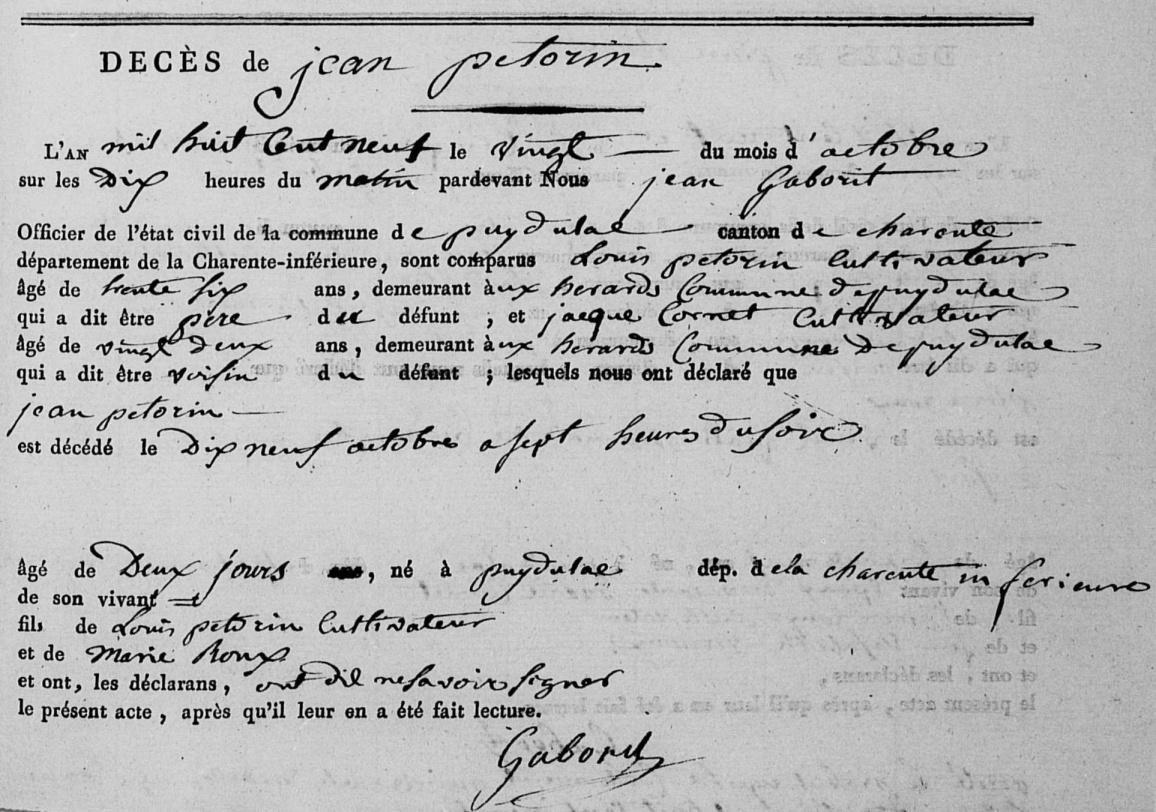 DECÈS de jean petorin
L'AN mil huit Cent neuf le vingt du mois d'octobre
sur les Dix heures du matin pardevant Nous jean Gaborit
Officier de l'état civil de la commune de puydulac canton de charente
département de la Charente-inférieure, sont comparus Louis petorin Cultivateur
âgé de trente six ans, demeurant à ux herards Commune de puydulac
qui a dit être père du défunt ; et jacque Cornet Cultivateur
âgé de vingt deux ans, demeurant à ux herards Commune de puydulac
qui a dit être voisin du défunt ; lesquels nous ont déclaré que
jean petorin
est décédé le Dix neuf octobre a sept heures du soir
âgé de Deux jours ans, né à puydulac dép. de la charente inferieure
de son vivant
fils de Louis petorin Cultivateur
et de Marie Roux
et ont, les déclarans, ont dit ne savoir signer
le présent acte, après qu'il leur en a été fait lecture.
Gaborit